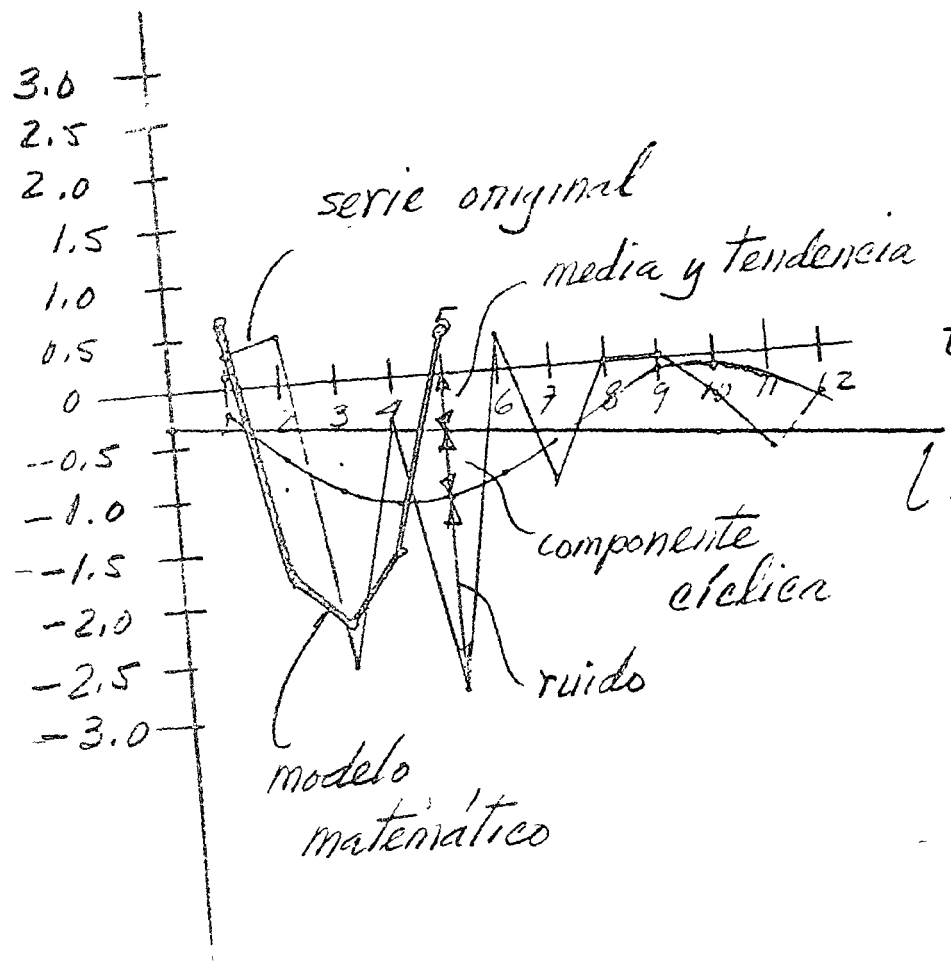 3.0
2.5
2.0
1.5
1.0
0.5
0
-0.5
-1.0
-1.5
-2.0
-2.5
-3.0
serie original
media y tendencia
5
t
2 3 4 6 7 8 9 10 11 12
componente
cíclica
ruido
modelo
matemático